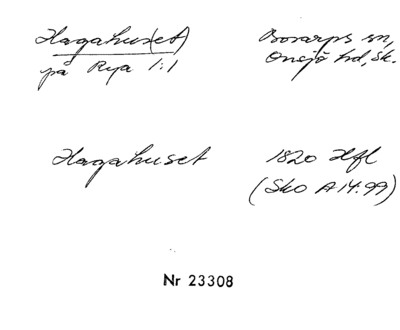 Hagahus(et) Bosarps sn,
på Rya 1:1 Onsjö hd, Sk.
Hagahuset 1820 Hfl
(Sko A 14:99)
Nr 23308